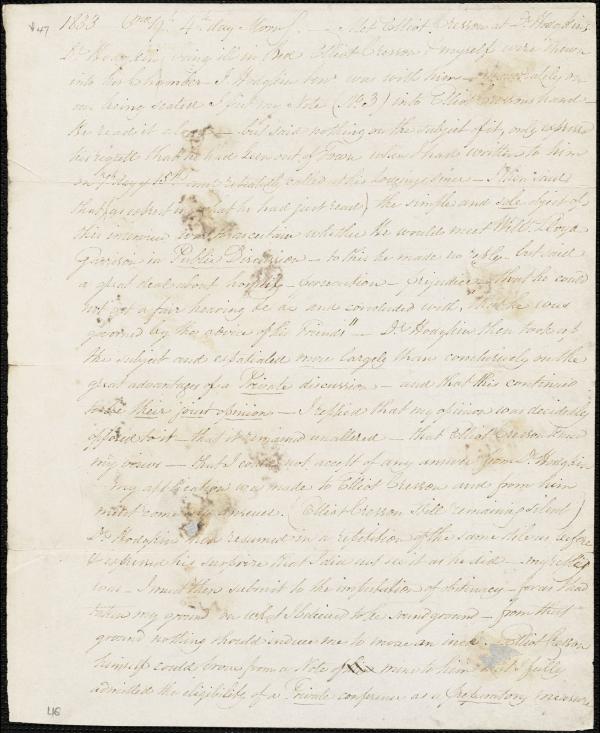 1833 6mo 19th 4th day Morng — Met Elliot Cresson at Dr Hodgkin's
Dr Hodgkin being ill in Bed Elliot Cresson & myself were shewn
into his Chamber — J. Hodgkin was with him — immediately on
our being seated I put my Note (No 3) into Elliot Cressons hand —
He read it — but said nothing on the subject of it, only
his regrets that he had been out of Town when I had written to him
on day 15th and called at his lodgings since — I then said
that (as respecting what he had just read) the simple and sole object of
this interview is to ascertain whether he would meet Willm Lloyd
Garrison in Public Discussion — to this he made no reply — but said
a great deal about — persecution — prejudice — that he could
not get a fair hearing &c &c and concluded with, "that he was
governed by the advice of his Friends" — Dr Hodgkin then took up
the subject and expatiated more largely than conclusively on the
great advantages of a Private discussion — and that this continued
to be their joint opinion — I replied that my opinion was decidedly
opposed to it — that it remained unaltered — that Elliot Cresson knew
my views — that I could not accept of any answer from Dr Hodgkin
my application was made to Elliot Cresson and from him
must come my answer. (Elliot Cresson still remaining silent)
Dr Hodgkin then resumed in a repetition of the same ideas as before
& expressed his surprise that I did not see it as he did — my reply
was — I must then submit to the imputation of obstinacy — for as I had
taken my ground on what I believed to be sound ground — from that
ground nothing should induce me to move an inch. Elliot Cresson
himself could prove from a Note of mine to him that I fully
admitted the eligibility of a Private conference as a Preparatory measure
V47
46